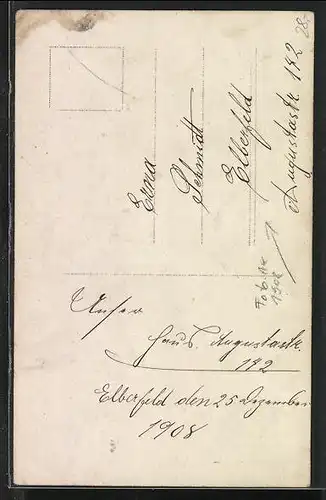 Erna
Schmidt
Elberfeld
Augustastr. 132
28.-
1908
Unser
Haus. Augustastr.
132
Elberfeld den 25 Dezember
1908